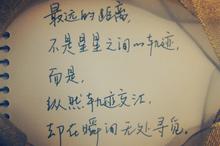 最远的距离,
不是星星之间的轨迹,
而是,
纵然轨迹交汇,
却在瞬间无处寻觅。